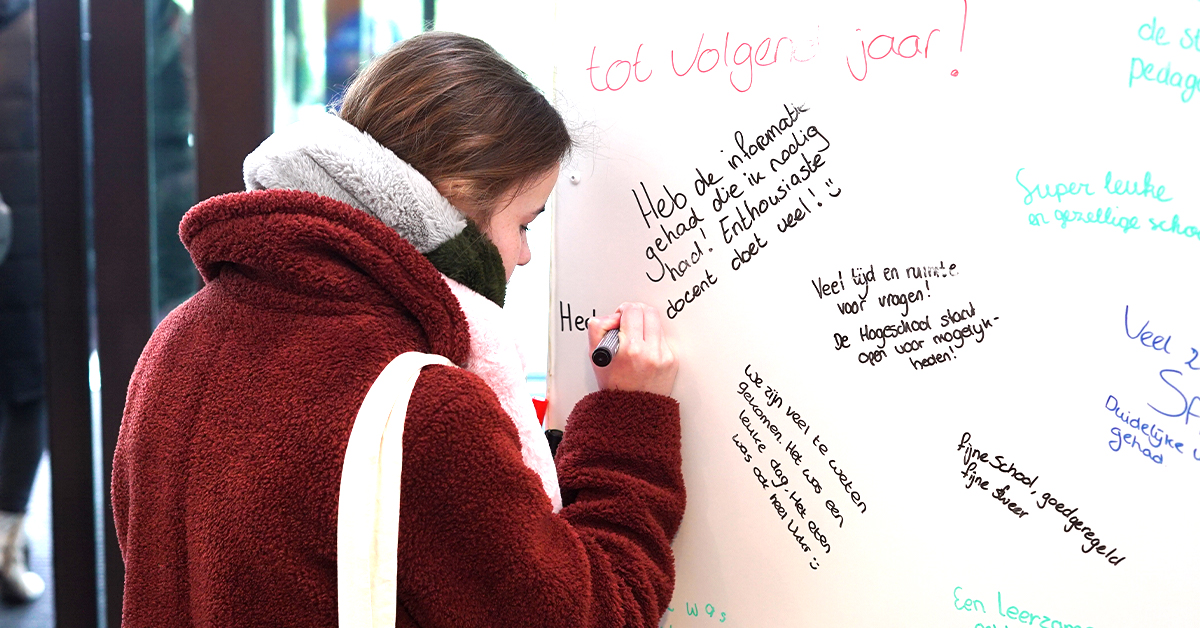 tot volgend jaar!
Heb de informatie
gehad die ik nodig
had! Enthousiaste
docent doet veel! :)
Hed
Veel tijd en ruimte
voor vragen!
De Hogeschool staat
open voor mogelijk-
heden!
We zijn veel te weten
gekomen. Het was een
leuke dag. Het eten
was ook heel lekker :)
fijne school, goedgeregeld
fijne sfeer
de st
pedag
Super leuke
en gezellige scho
Veel
Sf
Duidelijke
gehad
was
Een leerzame